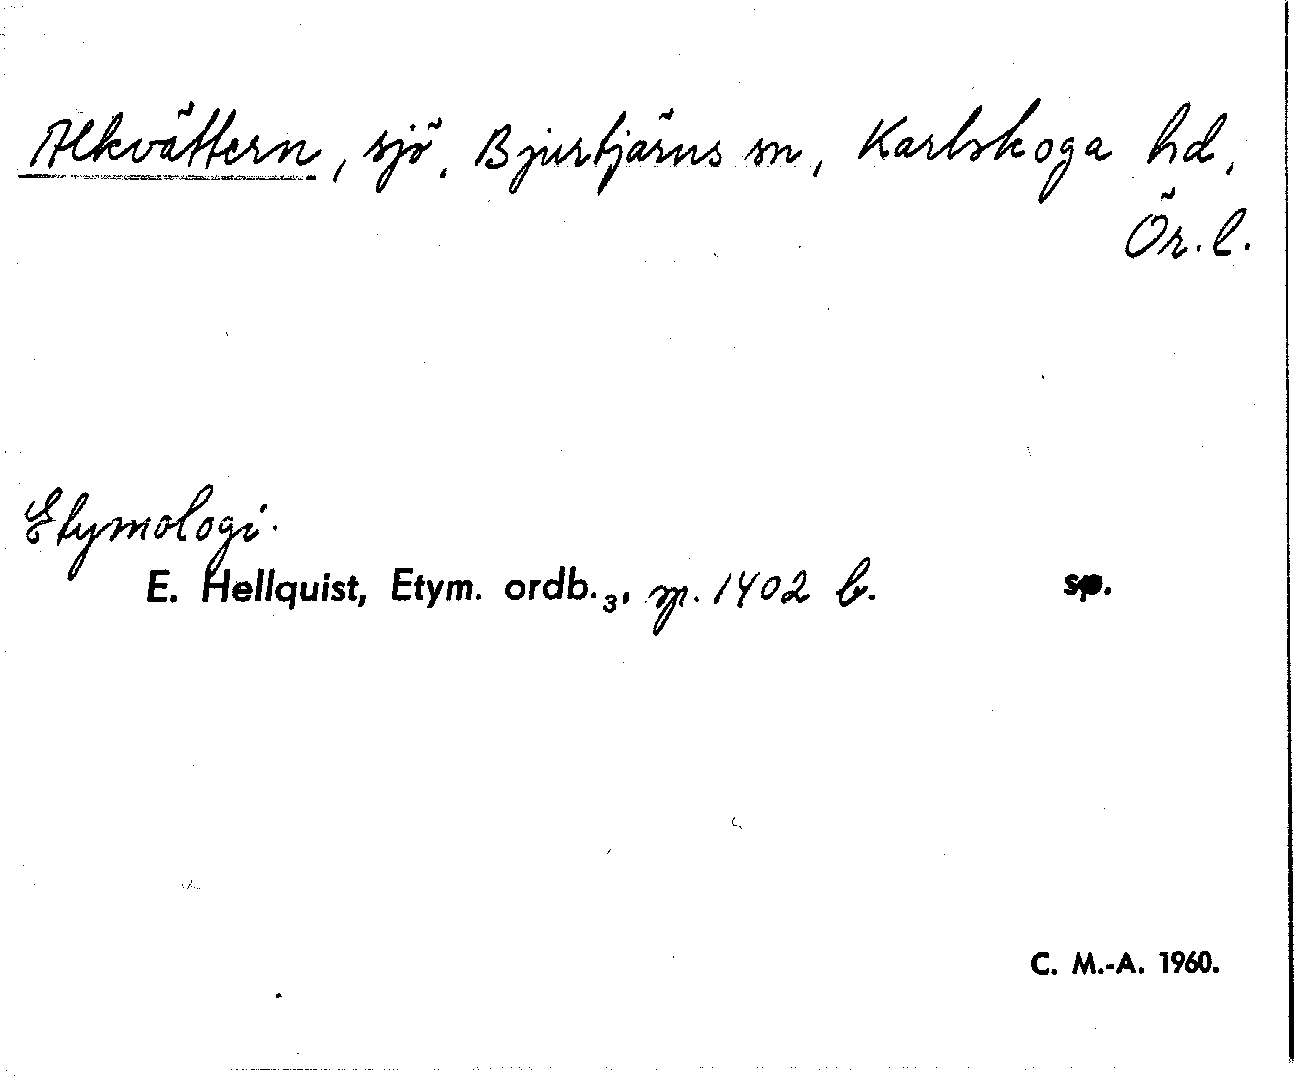 Alkvättern, sjö, Bjurtjärns sn, Karlskoga hd,
Ör. l.
Etymologi.
E. Hellquist, Etym. ordb.₃, sp. 1402 b. sp.
C. M.-A. 1960.